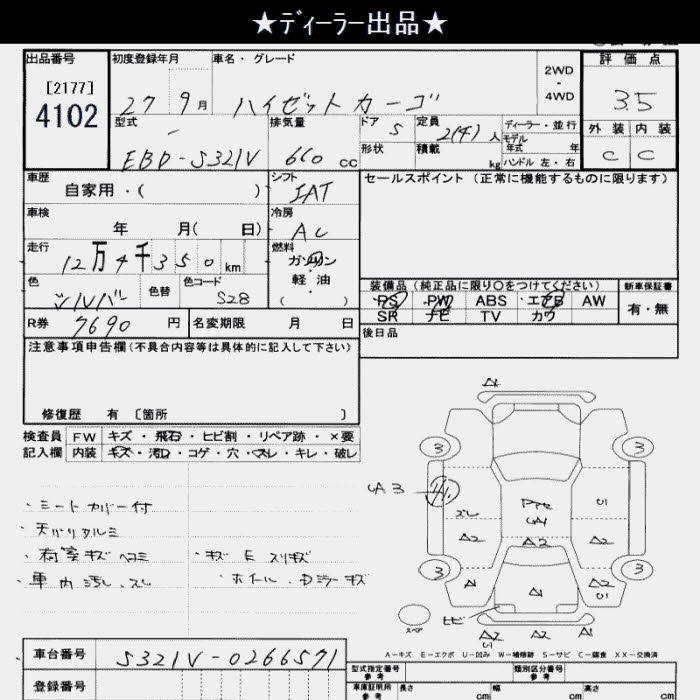 ★ディーラー出品★
出品番号
[2177]
4102
初度登録年月
27 9月
車名・グレード
ハイゼットカーゴ
2WD
・
4WD
評価点
3.5
外装 内装
C C
型式
EBD-S321V
排気量
660 cc
ドア 5
形状
定員
2(4)人
積載
kg
ディーラー・並行
モデル
年式 年
ハンドル 左・右
車歴
自家用・( )
シフト
IAT
セールスポイント(正常に機能するものに限ります)
車検
年 月( 日)
冷房
AC
走行
12万4千350km
燃料
ガソリン
・
軽油
( )
色
シルバー
色替
色コード
S28
装備品(純正品に限り○をつけてください)
新車保証書
PS PW ABS エアB AW
SR ナビ TV カワ
有・無
R券 7690円
名変期限 月 日
後日品
注意事項申告欄(不具合内容等は具体的に記入して下さい)
修復歴 有 〔箇所 〕
検査員 FW キズ・飛石・ヒビ割・リペア跡・×要
記入欄 内装 キズ・汚れ・コゲ・穴・スレ・キレ・破レ
・シートカバー付
・天バリクルミ
・荷室キズヘコミ
・キズ E スリキズ
・車内汚レ、スレ
・ホイール、Dミラーキズ
A1
3 3
UA3
スレ
U1
A2 A2 A2
3 3
A1 A1 A2
U1
ヒビ
スペア
A2 A2 A1
U1
A-キズ E-エクボ U-凹み W-補修跡 S-サビ C-腐食 XX-交換済
車台番号
S321V-0266571
登録番号
型式指定番号
参考
類別区分番号
参考
車庫証明用
参考
長さ cm
幅 cm
高さ cm